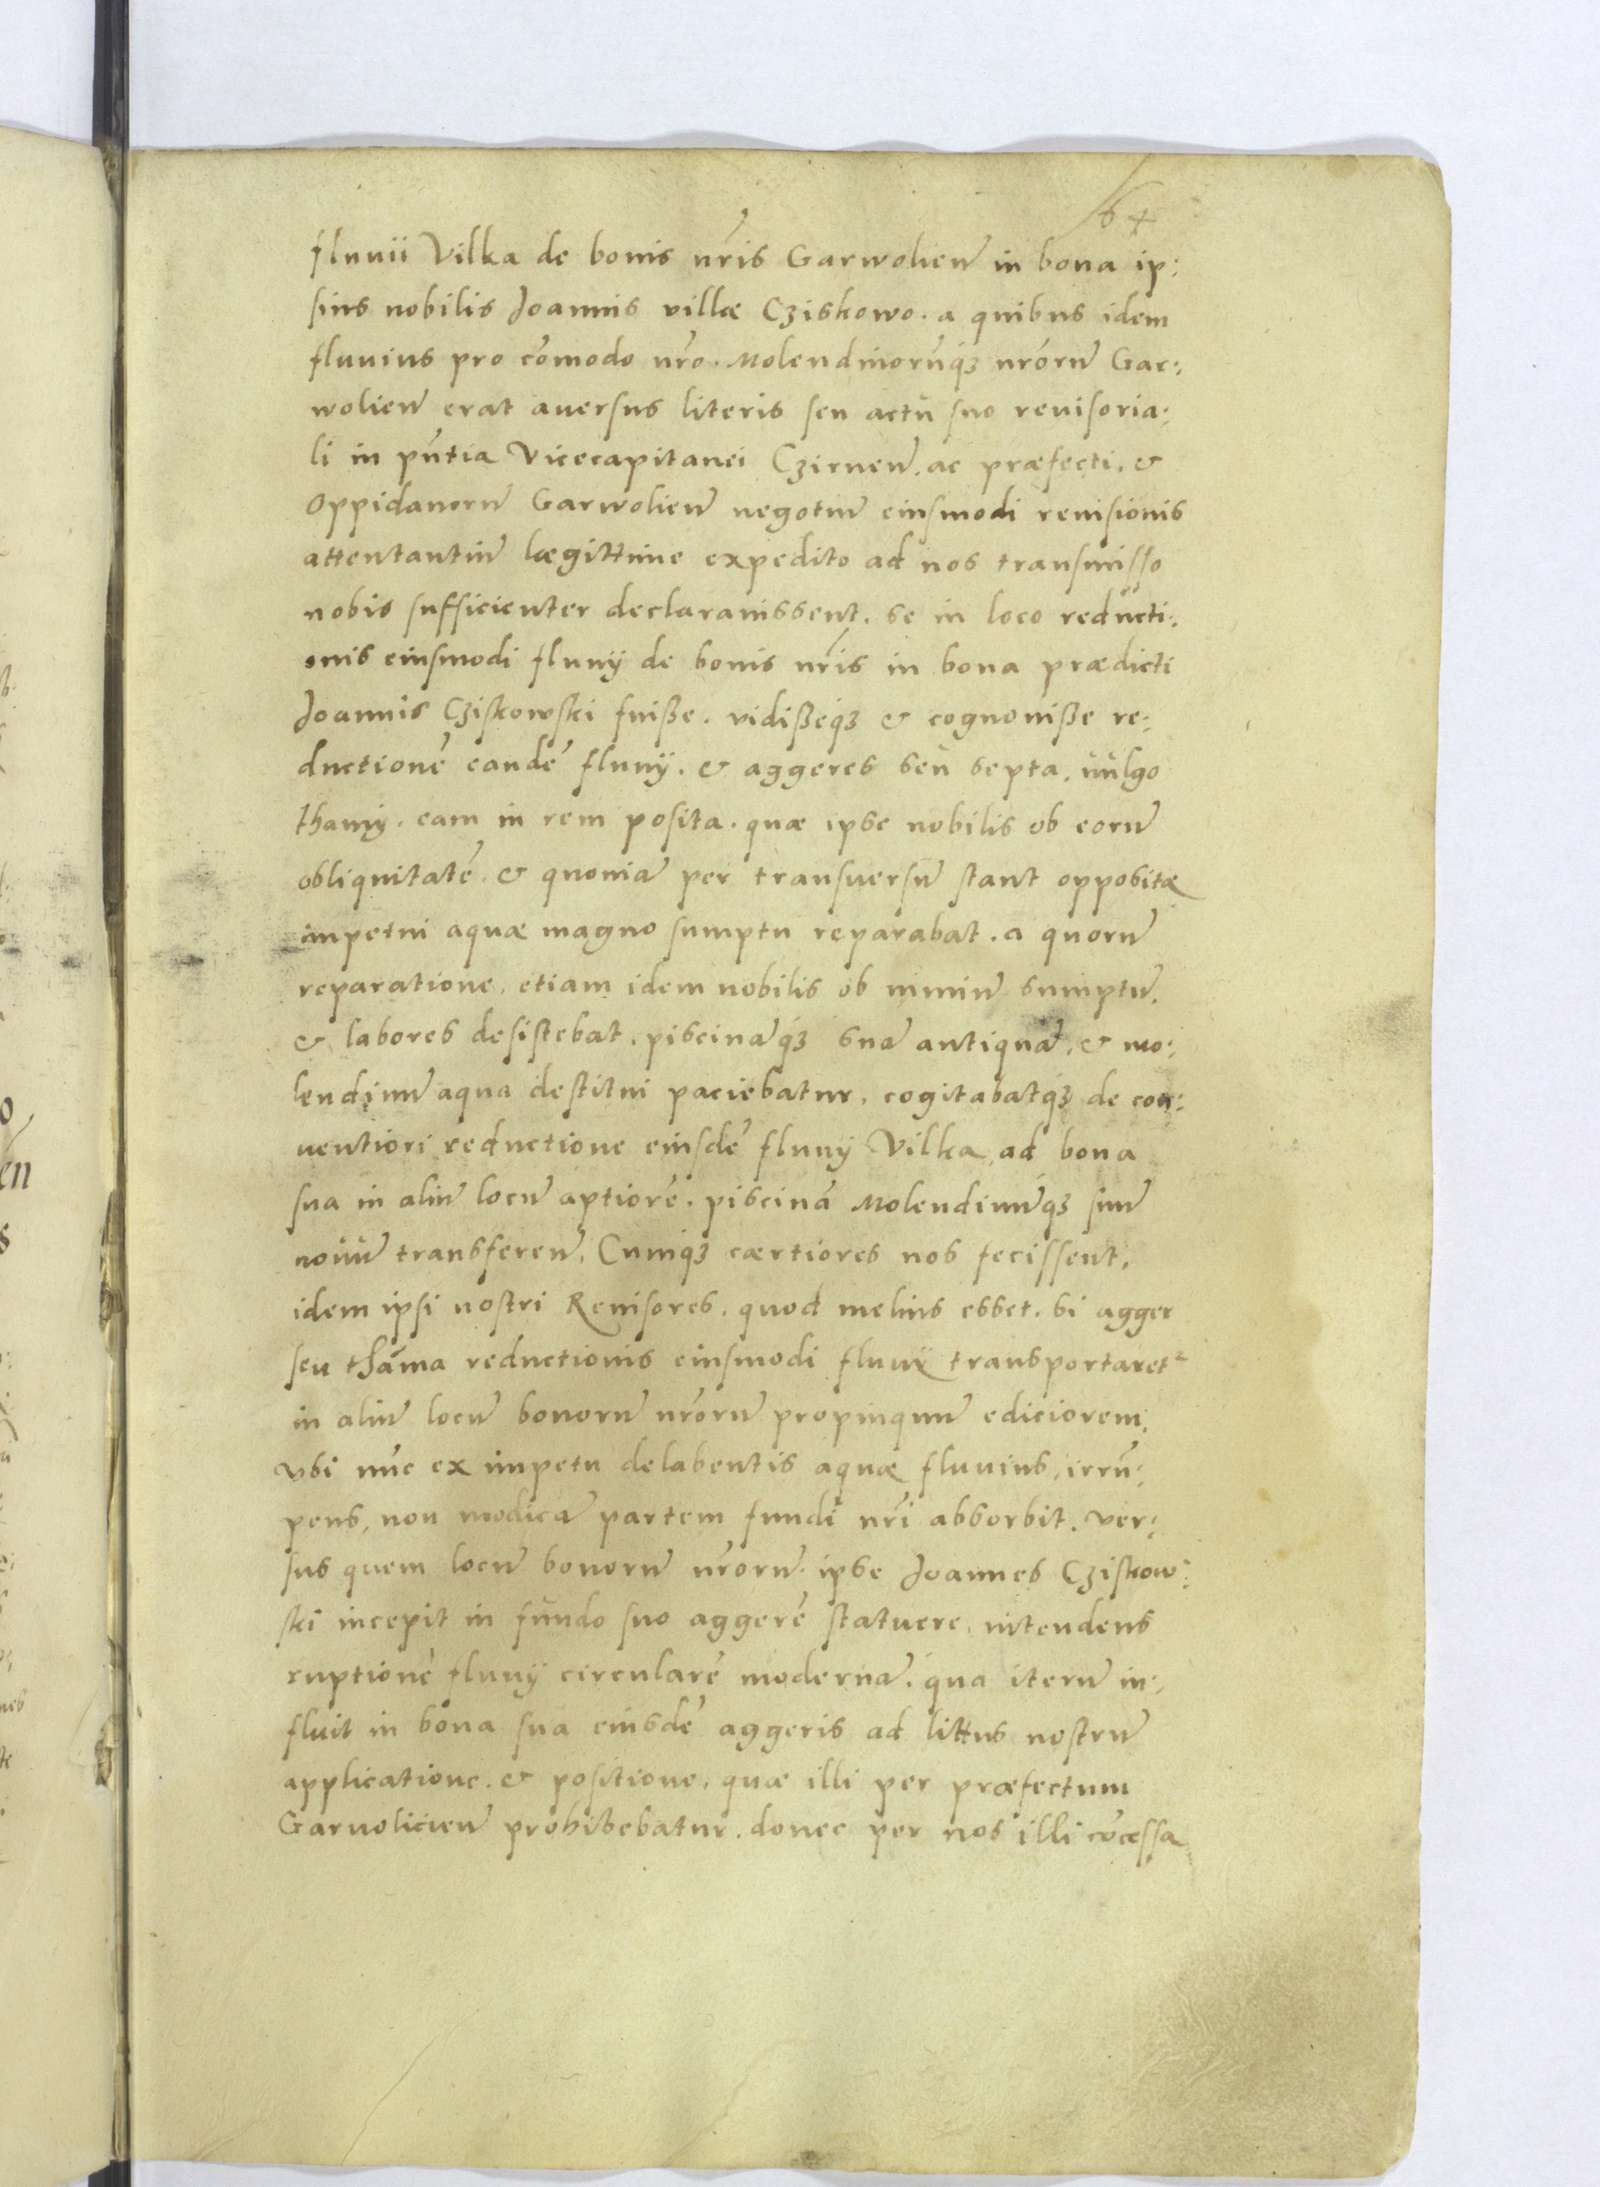 64
fluuii Vilka de bonis nr̃is Garwolieñ in bona ip:
sius nobilis Joannis villæ Cziskowo. a quibus idem
fluuius pro cõmodo nr̃o. Molendinorũq́ʒ nr̃orũ Gar:
wolieñ erat auersus literis seu actu suo reuisoria:
li in pñtia Vicecapitanei Czirneñ. ac præfecti. &
Oppidanorũ Garwolieñ negotiũ eiusmodi reuisionis
attentantiũ lægittime expedito ad nos transmisso
nobis sufficienter declarauissent. se in loco reducti:
onis eiusmodi fluuÿ de bonis nr̃is in bona prædicti
Joannis Cziskowski fuiße. vidißeq́ʒ & cognouiße re:
ductionẽ eandẽ fluuÿ. & aggeres seu septa. uulgo
thamÿ. eam in rem posita. quæ ipse nobilis ob eorũ
obliquitatẽ. & quoniã per transuersũ stant oppositæ
impetui aquæ magno sumptu reparabat. a quorũ
reparatione. etiam idem nobilis ob nimiũ sumptũ.
& labores desistebat. piscinãq́ʒ suã antiquã. & mo:
lendinũ aqua destitui paciebatur. cogitabatq́ʒ de con:
uentiori reductione eiusdẽ fluuÿ Vilka ad bona
sua in aliũ locũ aptiorẽ. piscinã Molendinũq́ʒ suũ
nouũ transfereñ. Cumq́ʒ cærtiores nos fecissent.
idem ipsi nostri Reuisores. quod melius esset. si agger
seu thãma reductionis eiusmodi fluuÿ transportaret²
in aliũ locũ bonorũ nr̃orũ propinquũ ediciorem.
vbi nũc ex impetu delabentis aquæ fluuius. irrũ:
pens, non modicã partem fundi nr̃i absorbit. ver:
sus quem locũ bonorũ nr̃orũ. ipse Joannes Cziskow:
ski incepit in fundo suo aggerẽ statuere. intendens
ruptionẽ fluuÿ circularẽ modernã. qua iterũ in:
fluit in bona sua eiusdẽ aggeris ad littus nostrũ
applicatione. & positione. quæ illi per præfectum
Garuolicieñ prohibebatur. donec per nos illi cõcessa